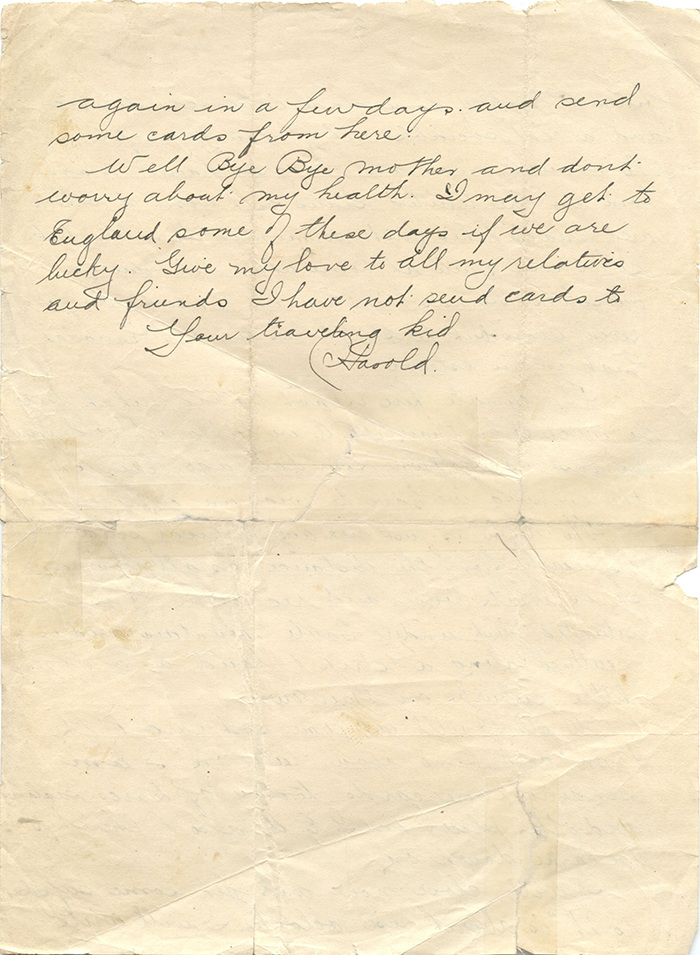 again in a few days. and send
some cards from here.
Well Bye Bye mother and dont
worry about my health. I may get to
England some of these days if we are
lucky. Give my love to all my relatives
and friends I have not send cards to
Your traveling kid
Harold.